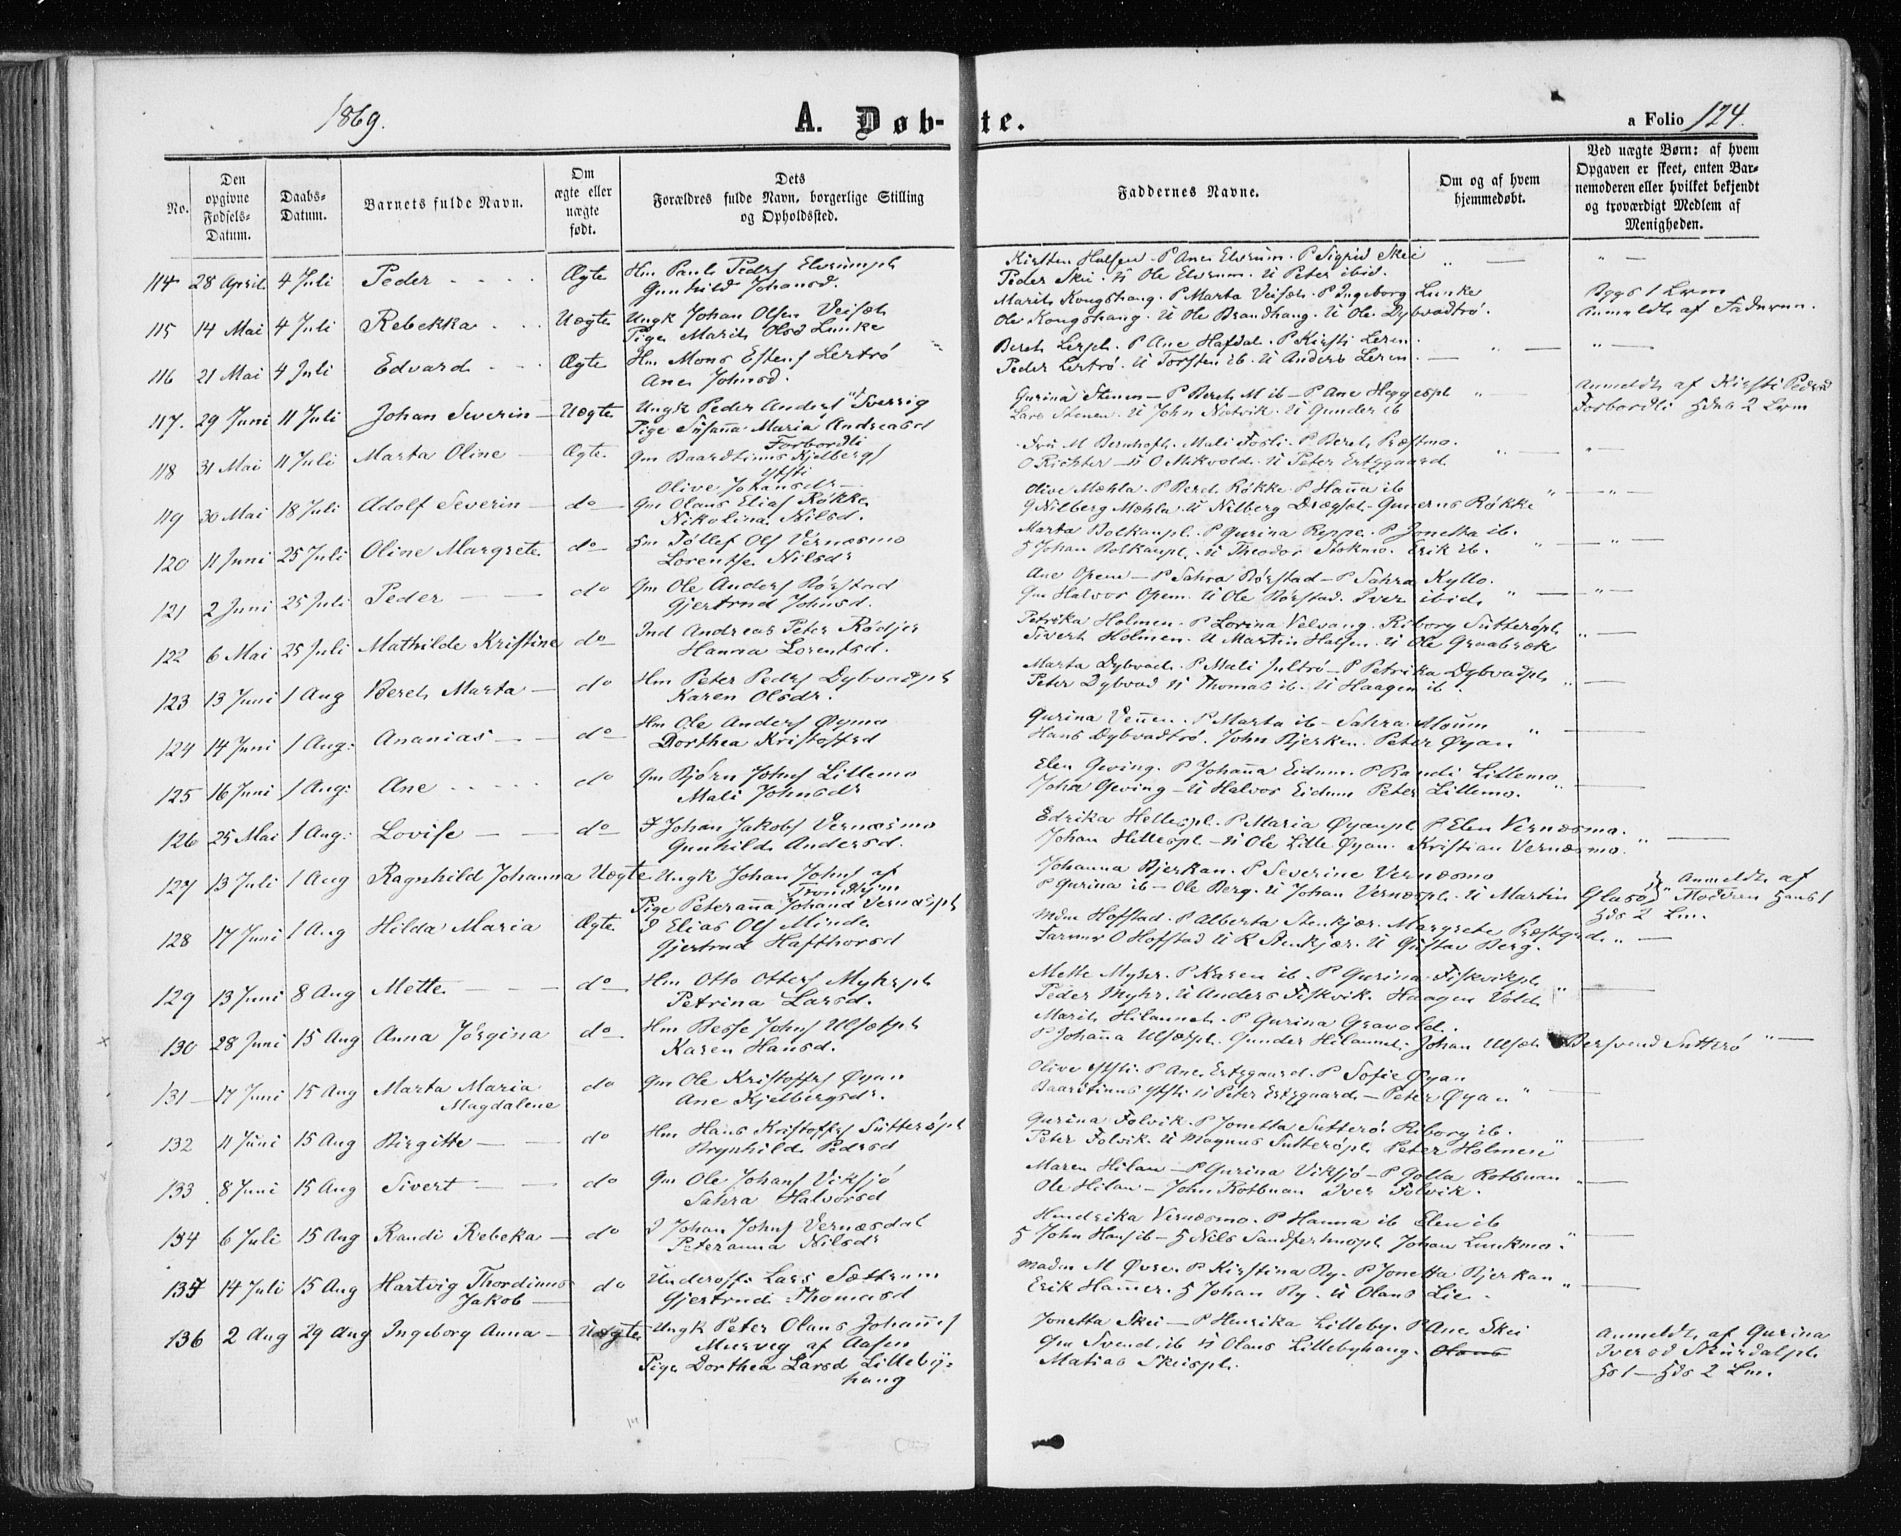 1869.
A. Døb-te.
a Folio 124.
No.
Den opgivne Fødsels-Datum.
Daabs-Datum.
Barnets fulde Navn.
Om ægte eller uægte født.
Dets Forældres fulde Navn, borgerlige Stilling og Opholdssted.
Faddernes Navne.
Om og af hvem hjemmedøbt.
Ved uægte Børn: af hvem Opgaven er skeet, enten Barnemoderen eller hvilket bekjendt og troværdigt Medlem af Menigheden.
114 28 April 4 Juli Peder Ægte Hm Paul Peders
Gunhild Johansd.
Kirsten Halsen P Ane Elverum P Sigrid Skei
Peder Skei U Ole Elverum U Peter ibid.
115 14 Mai 4 Juli Rebekka Uægte Ungk Johan Olsen
Pige Marit Olsd Lunke
Marit Kongshaug P Marta P Ingeborg Lunke
Ole Kongshaug U Ole Brandhaug U Ole Dybvadtrø.
Anmeldt af Faderen.
116 21 Mai 4 Juli Edvard Ægte Hm Mons Estens Lertrø
Ane Johnsd.
P Ane Hafdal P Kirsti Leren
Peder Lertrø. U Torsten ib. U Anders Leren
117. 29 Juni 11 Juli Johan Severin Uægte Ungk Peder Anders i Sverrig
Pige Susanna Maria Andreasd
Forbordli
Gurina Stenen P Beret M ib P Ane
Lars Stenen U John U Gunder ib
Anmeldt af Kirsti Pedersd
Forbordli Hds 2 Lvm
118 31 Mai 11 Juli Marta Oline Ægte Gm Baardtinus Kjelbergs
Yststi
Olive Johansdr
Fru M Bernhoft. Mali Fosli. P Beret Præstmo.
O Richter U O Mikvold. U Peter Ertzgaard
119 30 Mai 18 Juli Adolf Severin do Gm Olaus Elias Røkke
Nikolina Nilsd.
Olive Mæhla P Beret Røkke P Hanna ib
G Nilberg Mæhla U Nilberg Gunerus Røkke
120 11 Juni 25 Juli Oline Margrete do Hm Tøllef Ols Vernæsmo
Lorentse Nilsdr
Marta P Gurina Reppe P Jonetta ib.
S Johan U Theodor Stokmo. Erik ib.
121 2 Juni 25 Juli Peder do Gm Ole Anders Børstad
Gjertrud Johnsd.
Ane Opem P Sahra Børstad P Sahra Kyllo.
Gm Halvor Opem U Ole Børstad. Iver ibid.
122 6 Mai 25 Juli Mathilde Kristine do Ind Andreas Peter Rødjer
Hanna Lorentsd.
Petrika Holmen P Lorina Velvang. Riborg
Sivert Holmen U Martin Halsen U Ole Graabræk
123 13 Juni 1 Aug Beret Marta do Hm Peter Peders
Karen Olsdr.
Marta Dybvad P Mali Jultrø P Petrika
Peter Dybvad U Thomas ib. U Haagen ib.
124 14 Juni 1 Aug: Ananias do Hm Ole Anders Øymo
Dorthea Kristoffsd
Gurina Vennen. P Marta ib Sahra Moum
Hans Dybvadtrø. John Bjerken. Peter Øyan
125 16 Juni 1 Aug: Ane do Gm Bjørn Johns Lillemo
Mali Johnsdr
Elen Geving. P Johanna Eidum. P Randi Lillemo
John Geving U Halvor Eidum Peter Lillemo.
126 25 Mai 1 Aug: Lovise do I Johan Jakobs Vernæsmo
Gunhild Andersd.
Edrika Hellespl. P Maria P Elen Vernæsmo.
Johan Hellespl U Ole Lille Øyan. Kristian Vernæsmo.
127 13 Juli 1 Aug Ragnhild Johanna Uægte Ungk Johan Johns af
Trondhjem
Pige Peteranna Johansd
Johanna Bjerkan. P Severine Vernæsmo
P Gurina ib Ole Berg. U Johan U Martin Glasø
Anmeldt af
Moderen Hans 1
Hds 2 Lm.
128 17 Juni 1 Aug Hilda Maria Ægte I Elias Ols Minde
Gjertrud Hafthorsd
Mdm Hofstad P Alberta Stenkjær. Margrete
O Hofstad U R Stenkjær. U Gustav Berg.
129 13 Juni 8 Aug Mette do Hm Otto Otters
Petrina Larsd.
Mette Myhr. P Karen ib. P Gurina
Peder Myhr. U Anders Fiskvik. Haagen Vold
130 28 Juni 15 Aug Anna Jørgina do Hm Besse Johns
Karen Hansd.
Marit P Gurina
P Johanna Gunder Johan Bersvend Sutterø
131 17 Juni 15 Aug Marta Maria
Magdalene do Gm Ole Kristoffs Øyan
Ane Kjelbergsdr.
Olive Yststi. P Ane Ertzgaard. P Sofie Øyan
Baartinus Yststi U Peter Ertzgaard Peter Øyan
132 11 Juni 15 Aug Birgitte do Hm Hans Kristoffs
Brynhild Pedersd
Gurina Folvik. P Jonetta Sutterø. Riborg ib.
Peter Folvik. U Magnus Peter Holmen
133 8 Juni 15 Aug Sivert do Gm Ole Johans Viksjø
Sahra Halvorsd
Maren Hilan P Gurina Viksjø P Golla Rotbuan
Ole Hilan John Rotbuan Iver Folvik.
134 6 Juli 15 Aug Randi Rebeka do I Johan Johns Vernæsdal
Peteranna Nilsdr
Hendrika Vernæsmo. P Hanna ib Elen ib
S John Hans ib S Nils Johan Lunkmo.
135 14 Juli 15 Aug Hartvig Thordinus
Jakob do Underoffr. Lars Sætrum
Gjertrud Thomasd
Madm M Øvre P Kirstina Ry. P Jonetta Bjerkan
Erik Hammer. S Johan Ry. U Olaus Lie.
136 2 Aug 29 Aug Ingeborg Anna Uægte Ungk Peter Olaus Johannes
Murvig af Aasen
Pige Dorthea Larsd Lilleby-
haug
Jonetta Skei P Henrika Lilleby. P Ane Skei
Gm Svend ib U Olaus Lillebyhaug. Olaus
Matias Skeispl.
Anmeldt af Gurina
Iversd
Hs 1 Hds 2 Lm.